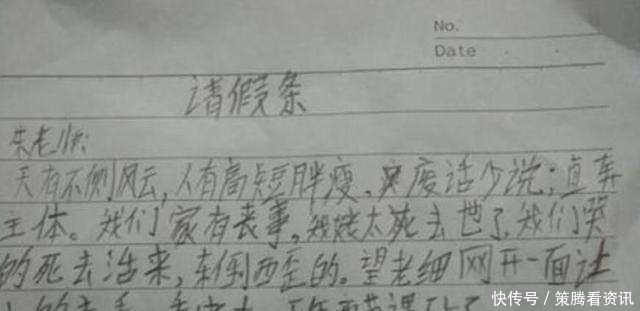 No.
Date
请假条
朱老师:
天有不侧风云,人有高短胖瘦,废话少说;直奔
主体。我们家有丧事。我姥太死去世了,我们哭
的死去活来,东倒西歪的。望老细网开一面让
快传号/策腾看资讯